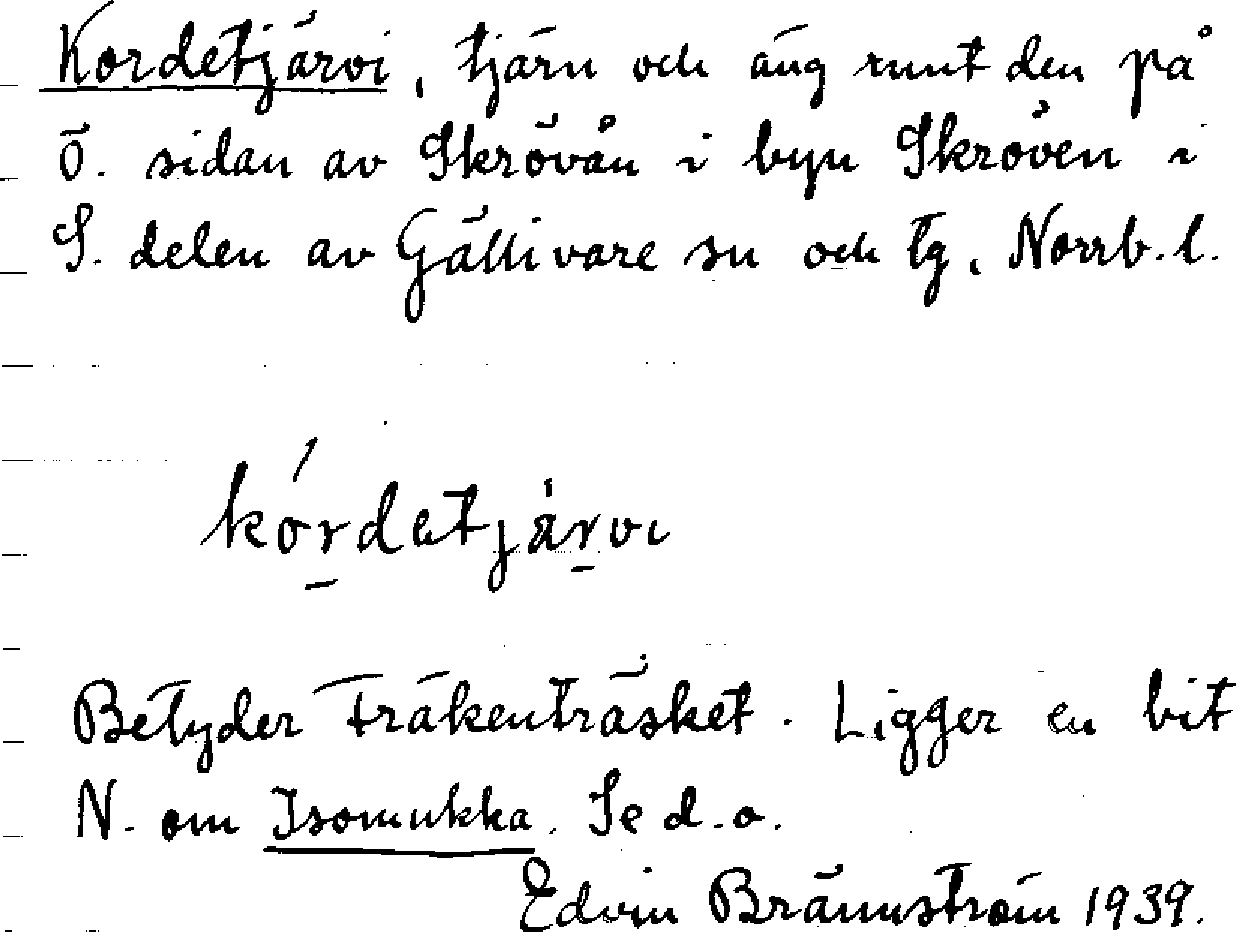 Kordetjärvi, tjärn och äng runt den på
ö. sidan av Skrövån i byn Skröven i
S. delen av Gällivare sn och tg, Norrb. l.
kórdetjärvi
Betyder Fräkenträsket. Ligger en bit
N. om Isomukka. Se d. o.
Edvin Brännström 1939.